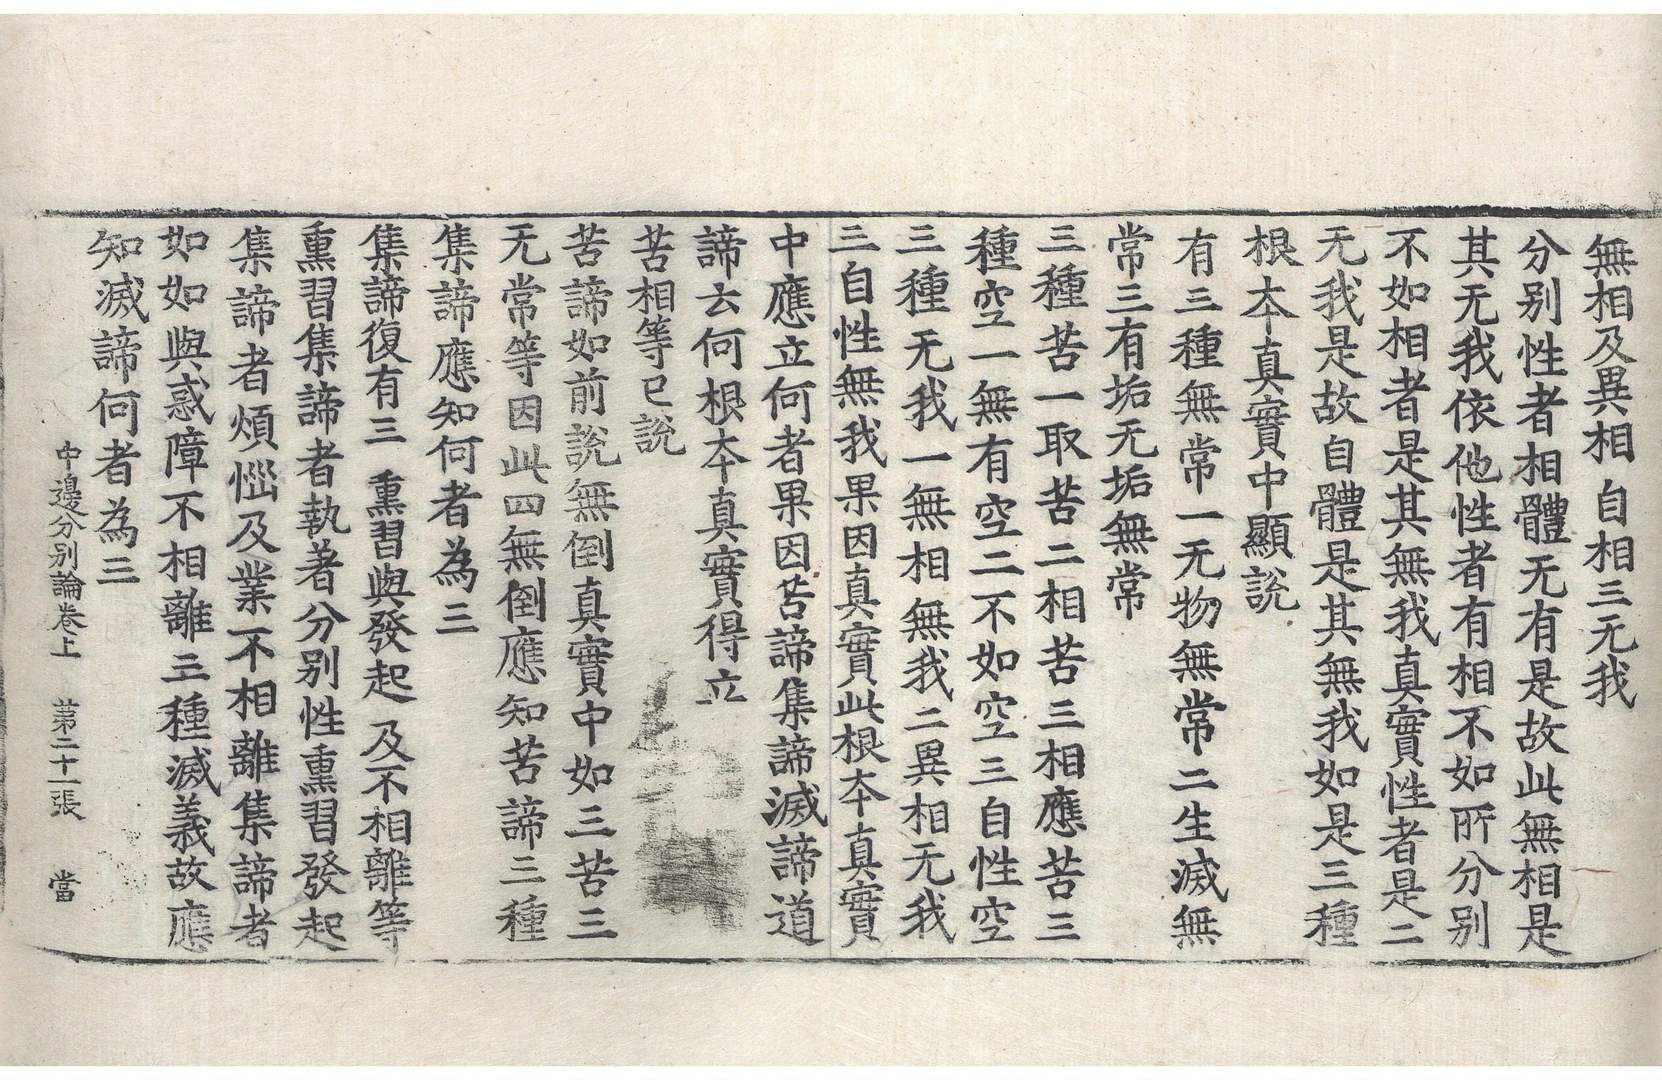 無相及異相 自相三无我
分别性者相體无有是故此無相是
其无我依他性者有相不如所分别
不如相者是其無我真實性者是二
无我是故自體是其無我如是三種
根本真實中顯説
有三種無常一无物無常二生滅無
常三有垢无垢無常
三種苦一取苦二相苦三相應苦三
種空一無有空二不如空三自性空
三種无我一無相無我二異相无我
三自性無我果因真實此根本真實
中應立何者果因苦諦集諦滅諦道
諦云何根本真實得立
苦相等已説
苦諦如前説無倒真實中如三苦三
无常等因此四無倒應知苦諦三種
集諦應知何者為三
集諦復有三 熏習與發起 及不相離等
熏習集諦者執著分别性熏習發起
集諦者煩惱及業不相離集諦者
如如與惑障不相離三種滅義故應
知滅諦何者為三
中邊分别論卷上 第二十一張 當